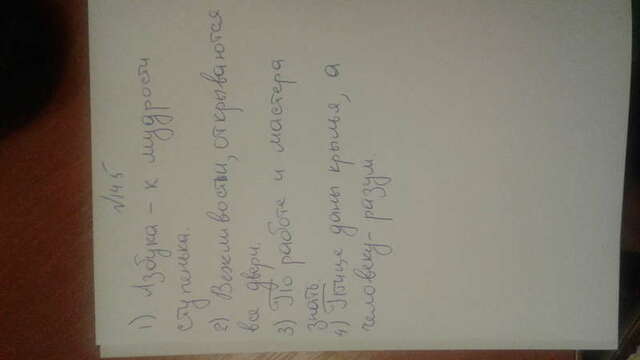 №145
1) Азбука – к мудрости
ступенька.
2) Вежливости, открываются
все двери.
3) По работе и мастера
знать
4) Птице даны крылья, а
человеку- разум.